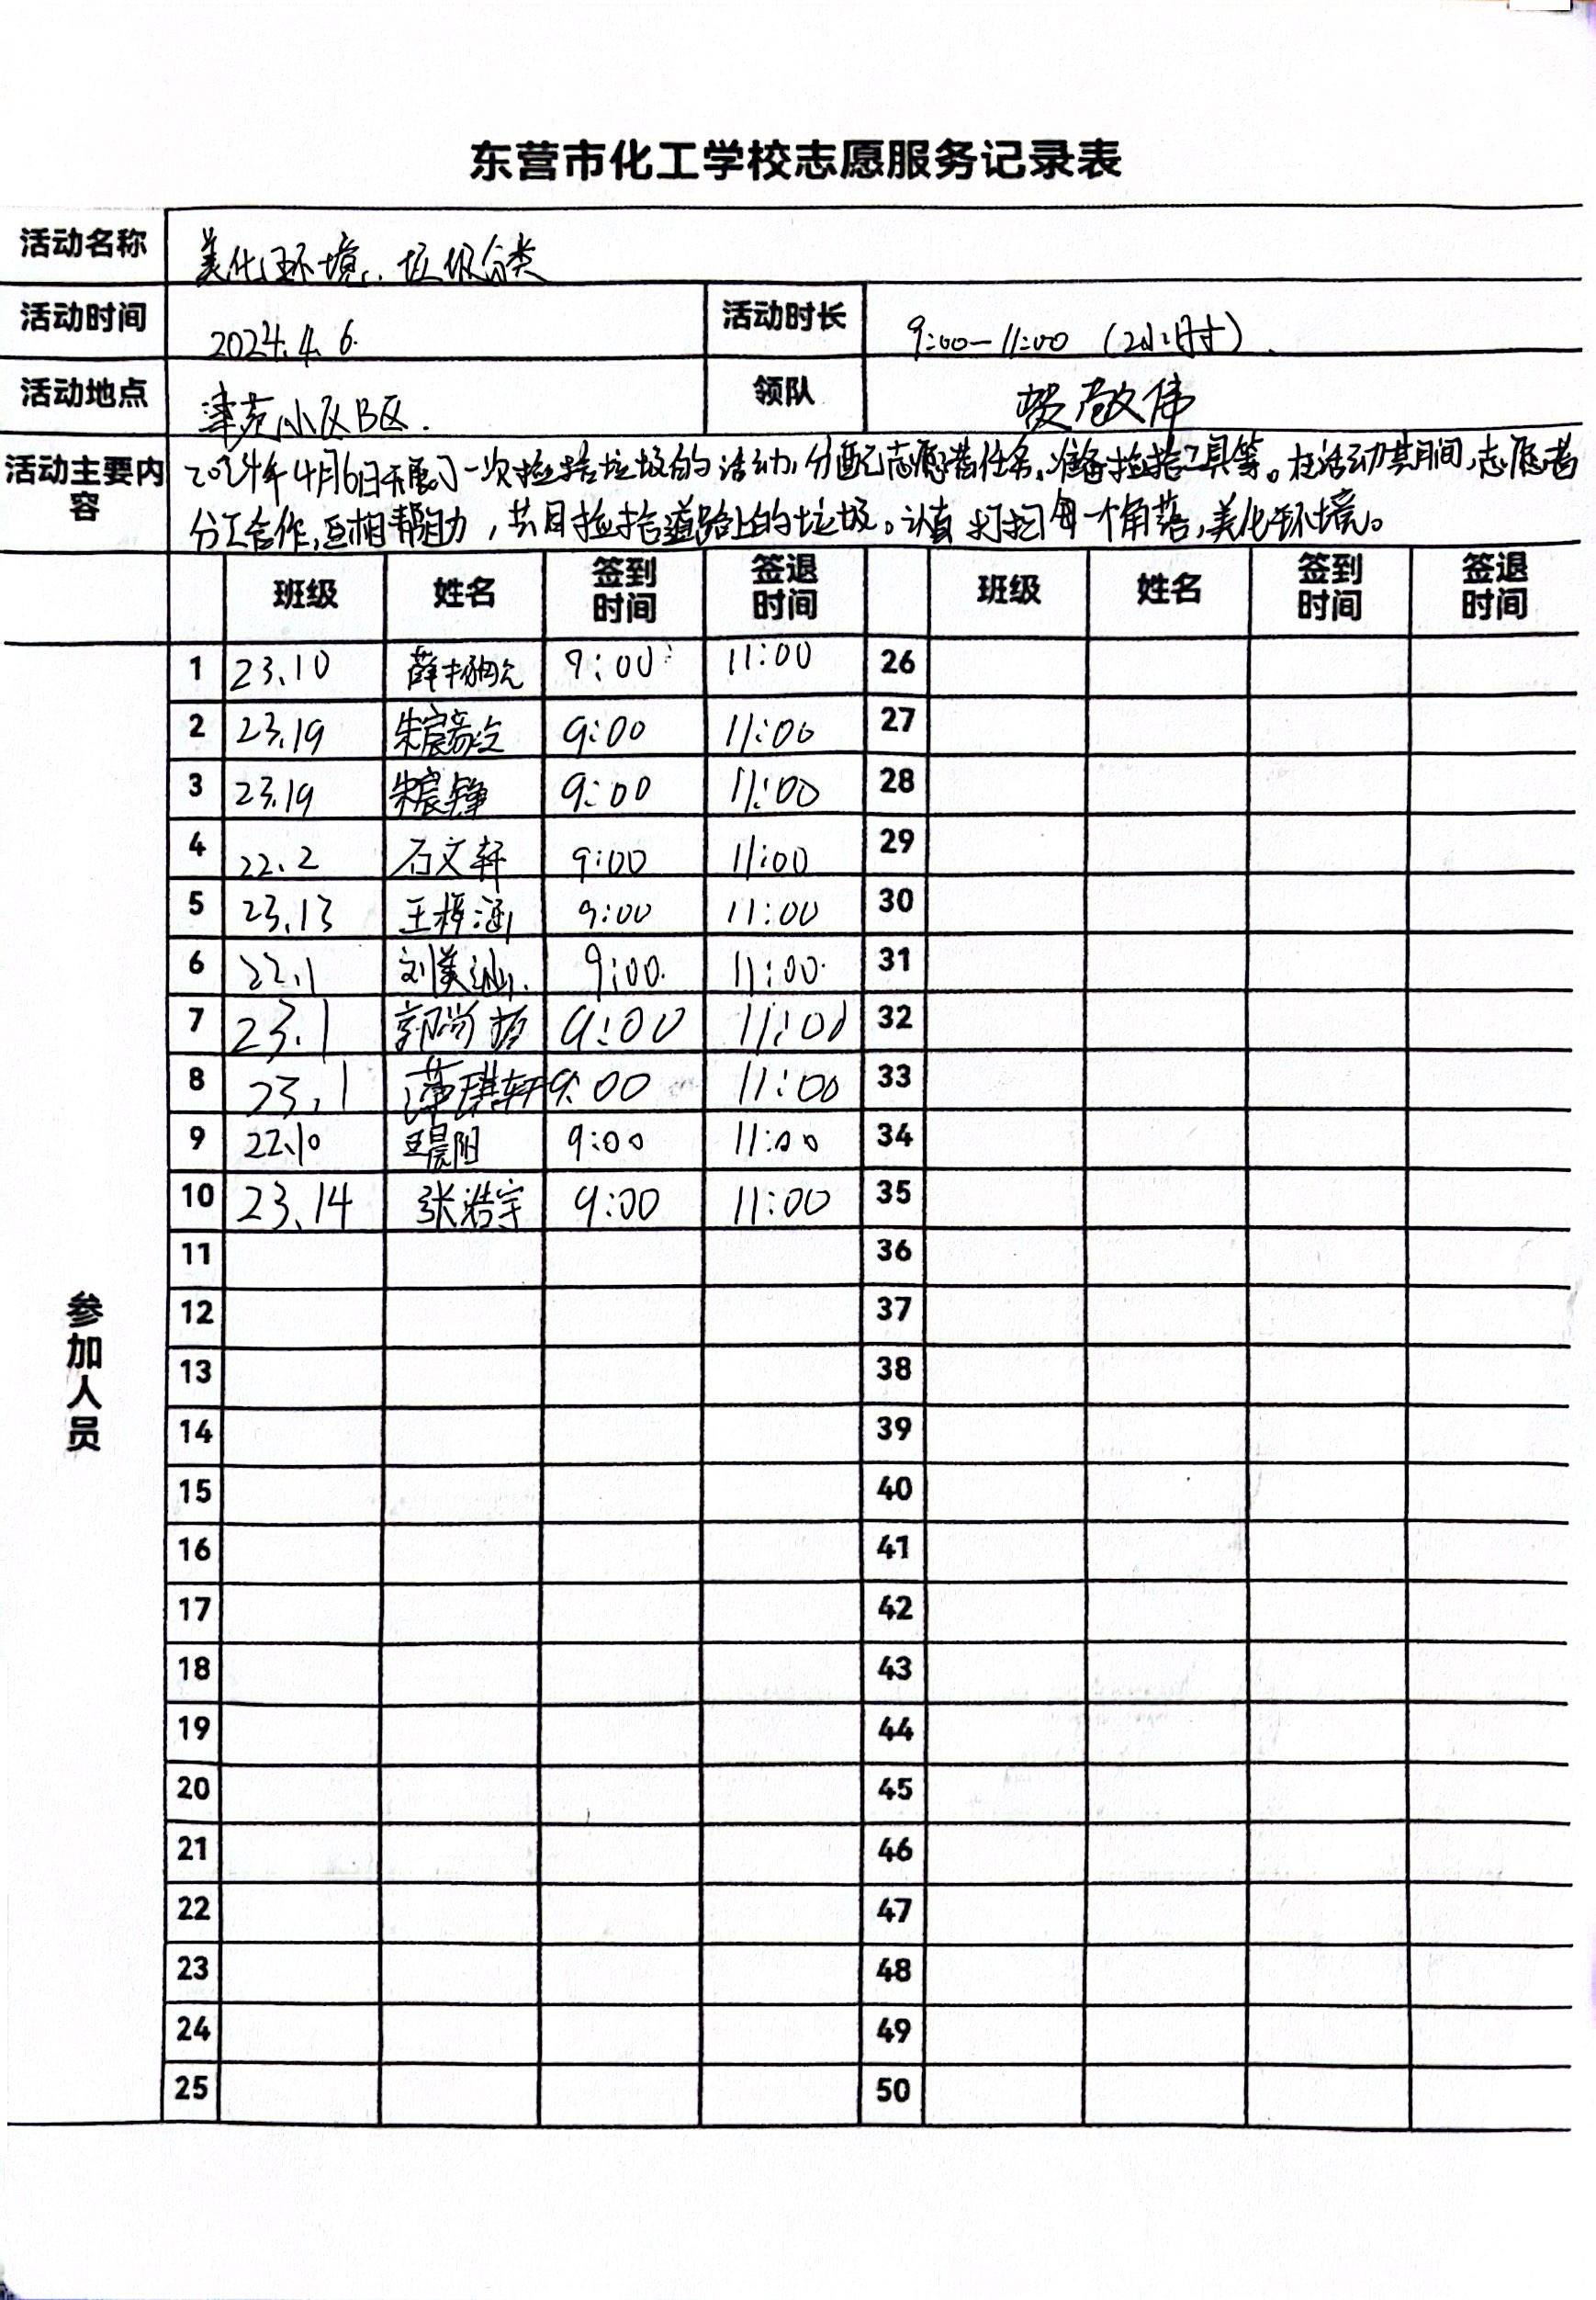 东营市化工学校志愿服务记录表
活动名称 美化环境、垃圾分类
活动时间 2024.4.6. 活动时长 9:00-11:00 (2小时).
活动地点 津苑小区B区. 领队 贺敬伟
活动主要内容 2024年4月6日开展了一次捡拾垃圾的活动,分配志愿者任务、准备捡拾工具等。在活动期间,志愿者
分工合作,互相帮助,共同捡拾道路上的垃圾。认真打扫每一个角落,美化环境。
班级 姓名 签到时间 签退时间 26 班级 姓名 签到时间 签退时间
参加人员
1 23.10 薛 9:00 11:00 26
2 23.19 朱宸 9:00 11:00 27
3 23.19 朱宸铮 9:00 11:00 28
4 22.2 石文轩 9:00 11:00 29
5 23.13 王梓涵 9:00 11:00 30
6 22.1 刘美汕 9:00 11:00 31
7 23.1 郭尚哲 9:00 11:00 32
8 23.1 薄琪轩 9:00 11:00 33
9 22.10 王晨阳 9:00 11:00 34
10 23.14 张浩宇 9:00 11:00 35
11 36
12 37
13 38
14 39
15 40
16 41
17 42
18 43
19 44
20 45
21 46
22 47
23 48
24 49
25 50